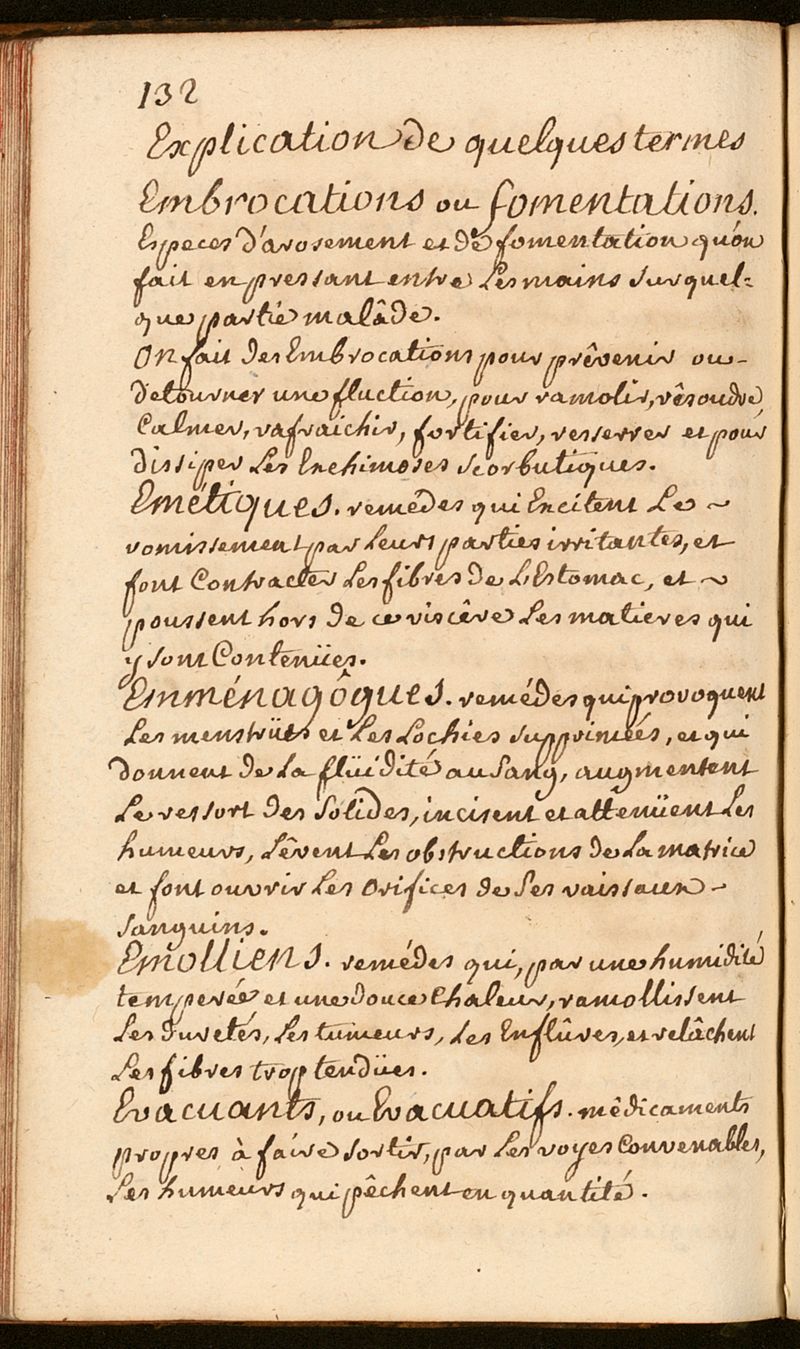 132
Explication de quelques termes
Embrocations ou fomentations.
Especes d'arosement et de fomentation qu'on
fait en pressant entre Les mains sur quel=
que partie malâde.
On fait des Embrocations pour prêvenir ou -
detourner une fluction, pour ramolir, rêsoudre,
Calmer, rafraichir, fortifier, resserrer et pour
dissiper Les Enchimoses scorbutiques.
Emétiques. remêdes qui Excitent Le ~
vomissement par Leurs parties irritantes, et
font Contracter Les fibres de L'Estomac, et ~
poussent hors de ce viscêre Les matieres qui
y sont Contenües.
Emménagôgues. remédes qui provoquent
Les menstrües et Les Lochies supprimées, et qui
donnent de La flüidité au Sang, augmentent
Le ressort des Solides, incisent et attenüent Les
humeurs, Lêvent Les obstructions de La matrice
et font ouvrir Les orifices de Ses vaissaux -
sanguins.
Emolliens. remédes qui, par une humidité
temperée et une douce Chaleur, ramollissent
Les duretés, Les tumeurs, Les Enflûres, et relâchent
Les fibres trop tendües.
Evacuants, ou Evacuatifs. mêdicaments
propres à faire sortir, par Les voyes Convenables,
Les humeurs qui pêchent en quantité.